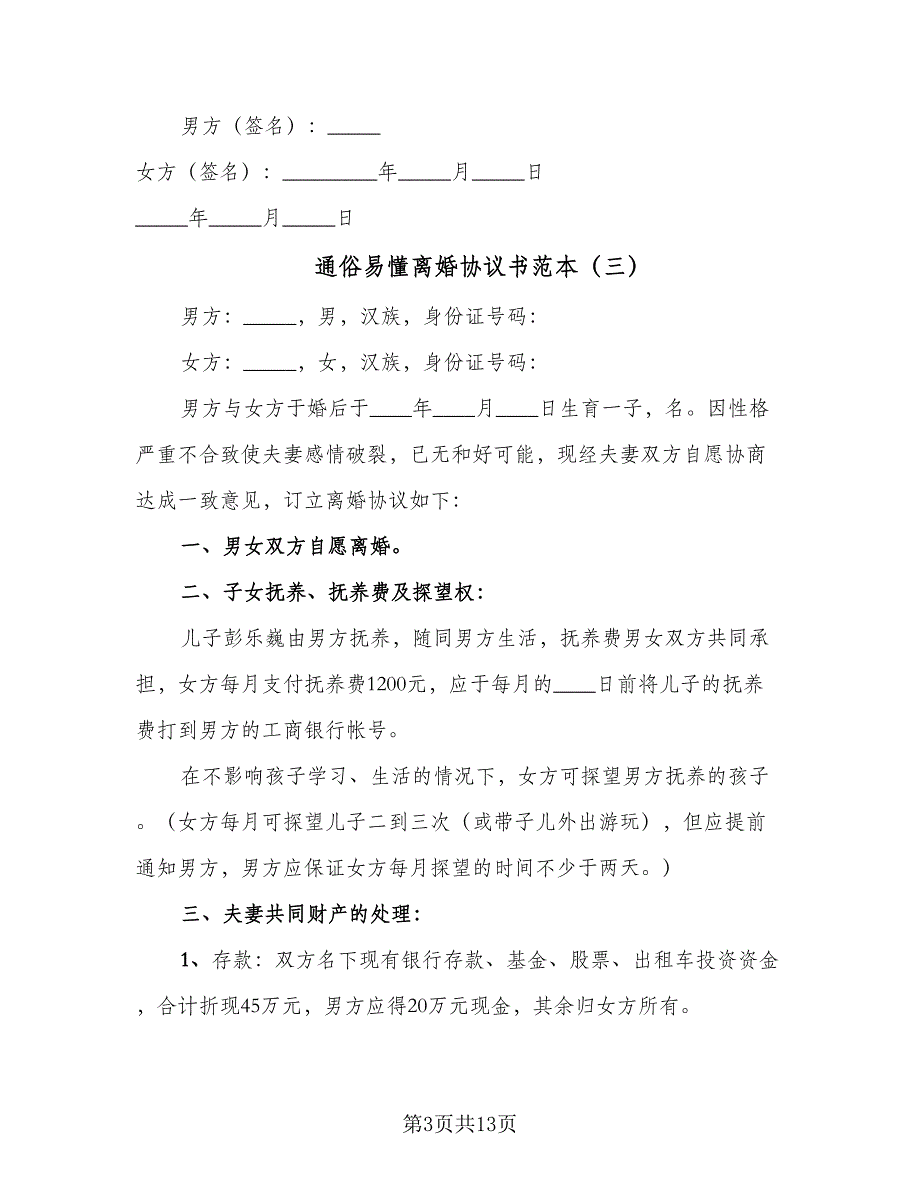 男方（签名）：_____
女方（签名）：_________年_____月_____日
_____年_____月_____日
通俗易懂离婚协议书范本（三）
男方：_____，男，汉族，身份证号码：
女方：_____，女，汉族，身份证号码：
男方与女方于婚后于____年____月____日生育一子，名。因性格
严重不合致使夫妻感情破裂，已无和好可能，现经夫妻双方自愿协商
达成一致意见，订立离婚协议如下：
一、男女双方自愿离婚。
二、子女抚养、抚养费及探望权：
儿子彭乐巍由男方抚养，随同男方生活，抚养费男女双方共同承
担，女方每月支付抚养费1200元，应于每月的____日前将儿子的抚养
费打到男方的工商银行帐号。
在不影响孩子学习、生活的情况下，女方可探望男方抚养的孩子
。（女方每月可探望儿子二到三次（或带子儿外出游玩），但应提前
通知男方，男方应保证女方每月探望的时间不少于两天。）
三、夫妻共同财产的处理：
1、存款：双方名下现有银行存款、基金、股票、出租车投资资金
，合计折现45万元，男方应得20万元现金，其余归女方所有。
第3页共13页